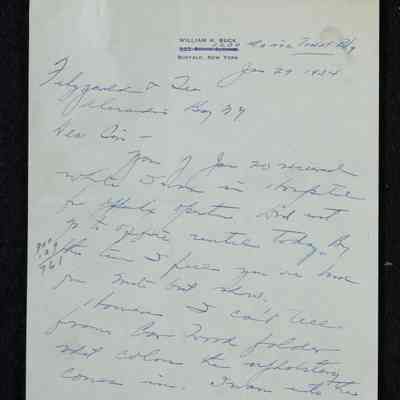 WILLIAM H. BUCK
1200 Marine Trust Bldg
BUFFALO, NEW YORK
Jan 29 1934
Fitzgerald & Lee
Alexandria Bay NY
Dear Sirs -
Yours of Jan 20 received
while I was in hospital
for appendix operation Did not
go to office until today. By
this time I guess you are have
your Motor boat show.
However I can't tell
from Car Wood folder
what colors the upholstery
comes in. I was into the